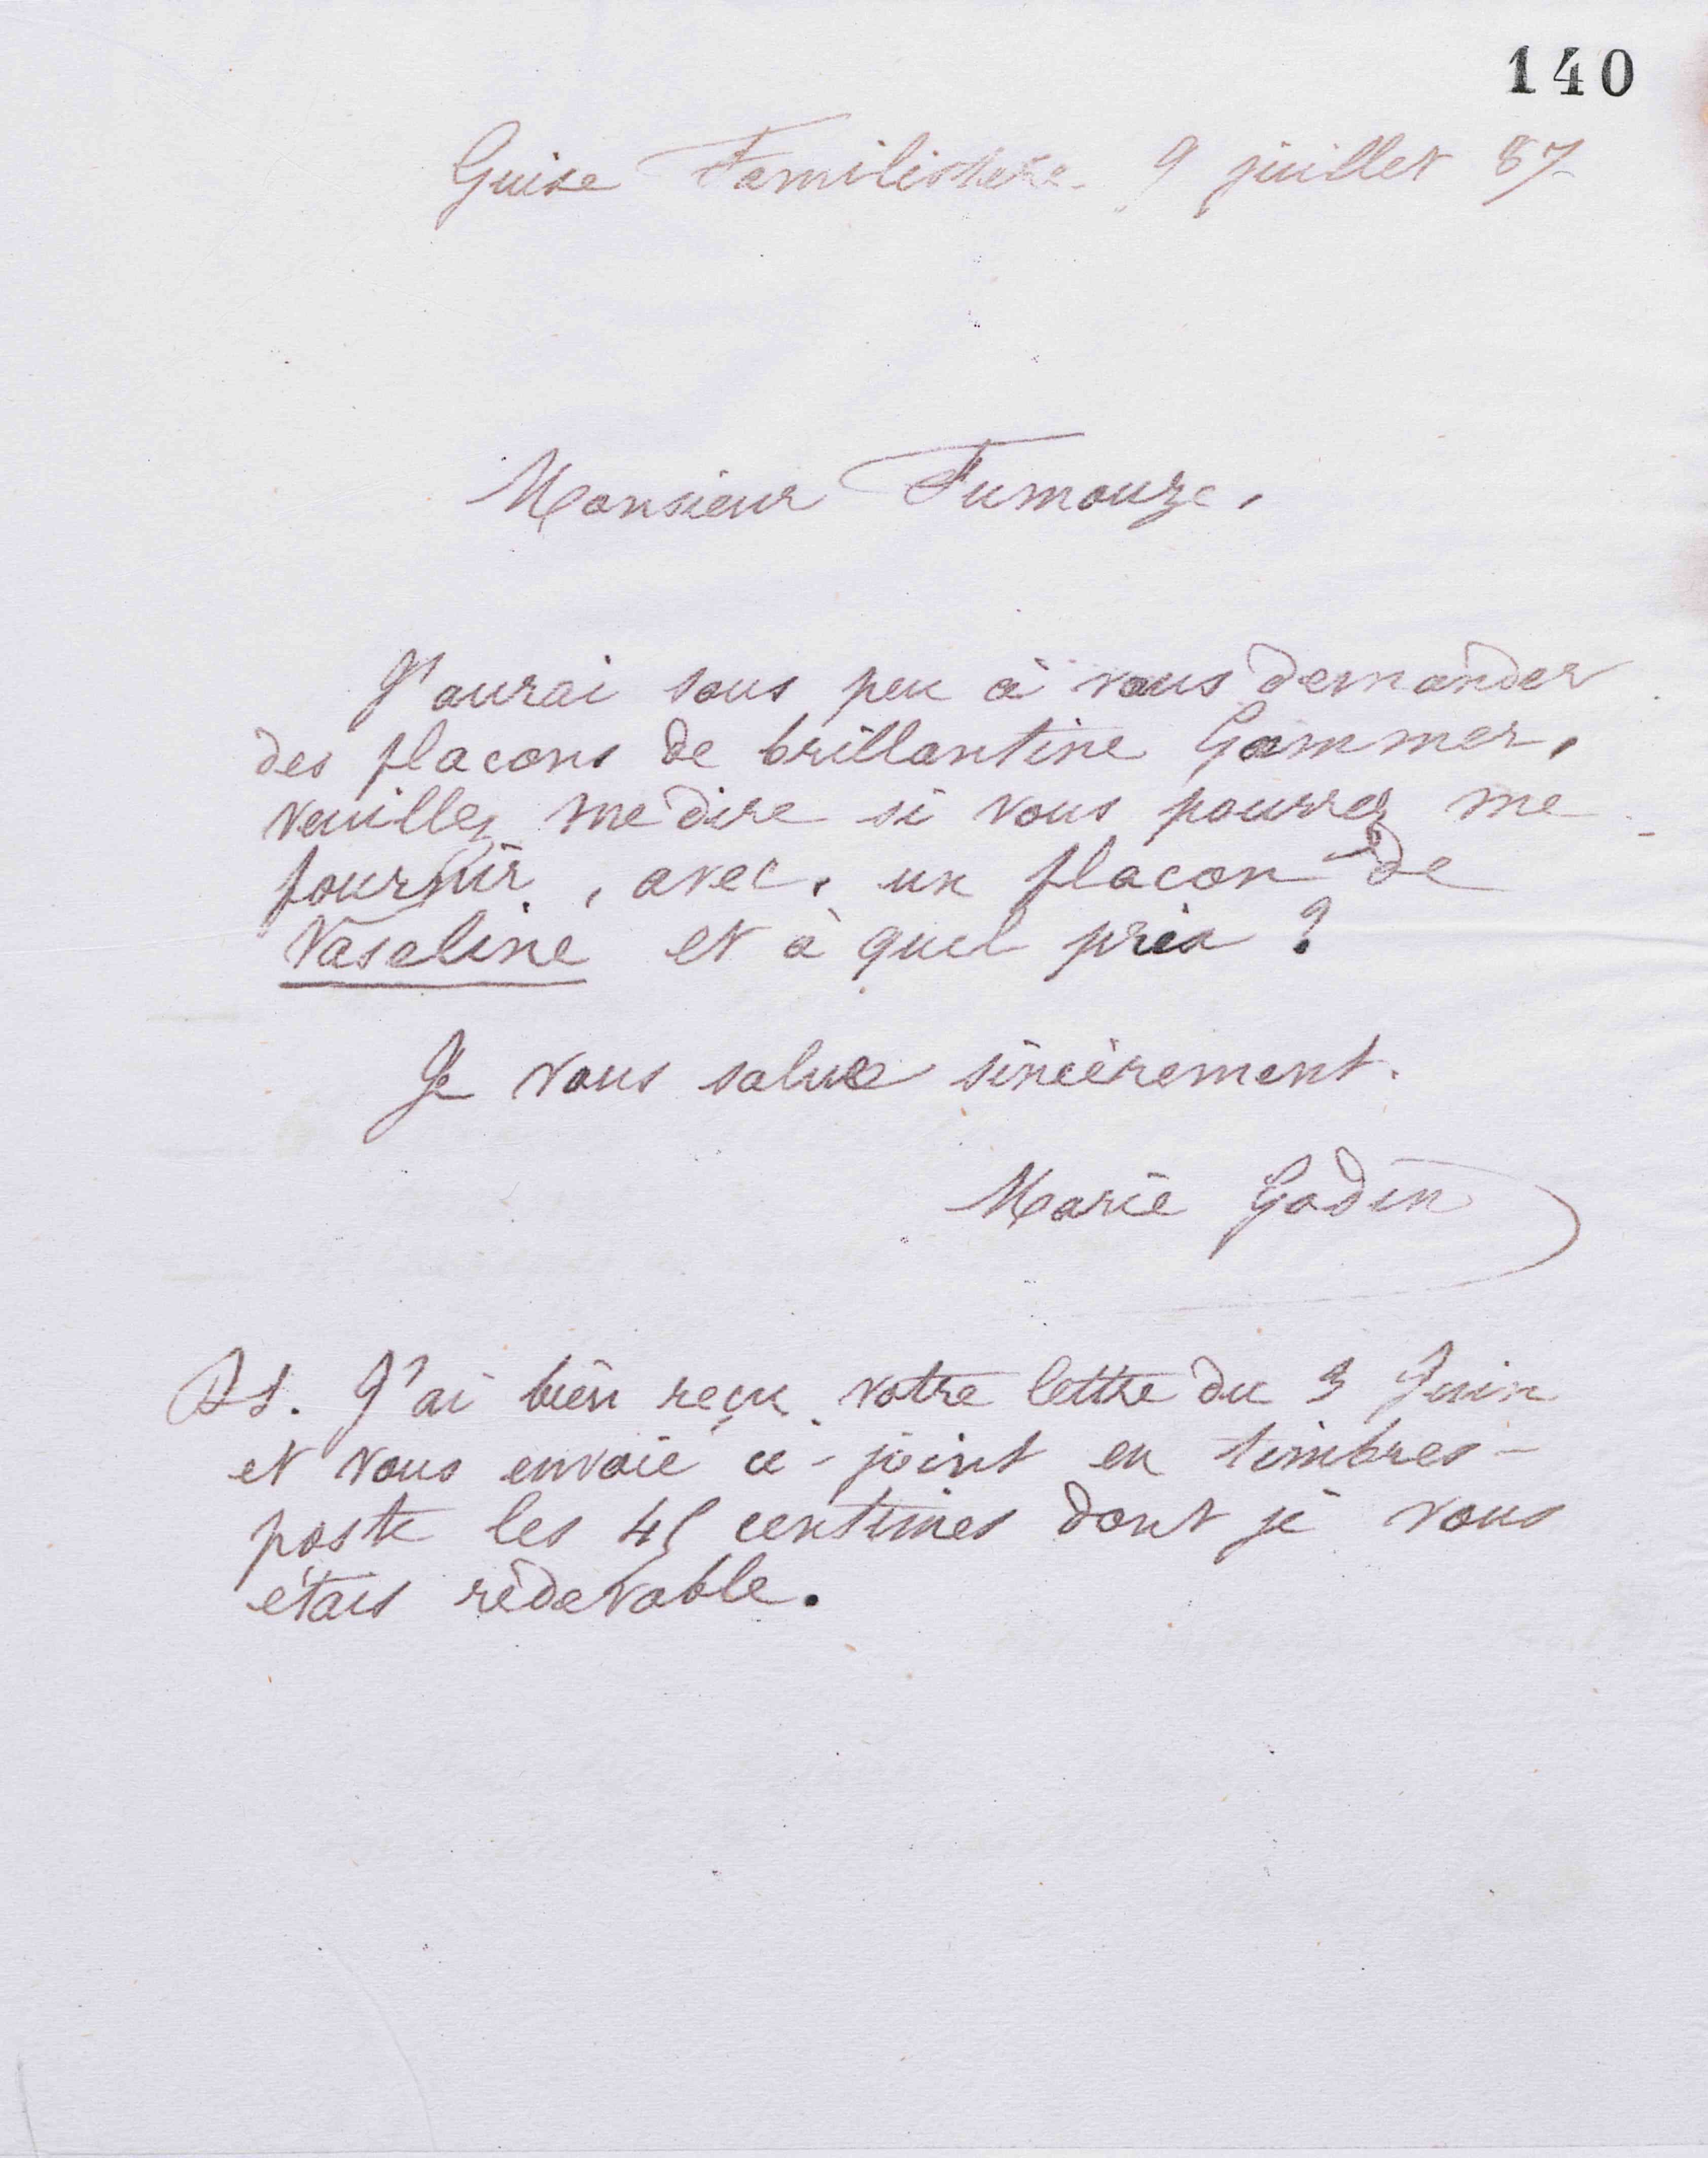 140
Guise Familistère. 9 juillet 87
Monsieur Fumouze,
J'aurai sous peu à vous demander
des flacons de brillantine Gommer,
veuillez me dire si vous pourrez me
fournir, avec, un flacon de
Vaseline et à quel prix ?
Je vous salue sincèrement.
Marie Godin
Ps. J'ai bien reçu votre lettre du 3 Juin
et vous envoie ci-joint en timbres-
poste les 45 centimes dont je vous
étais redevable.